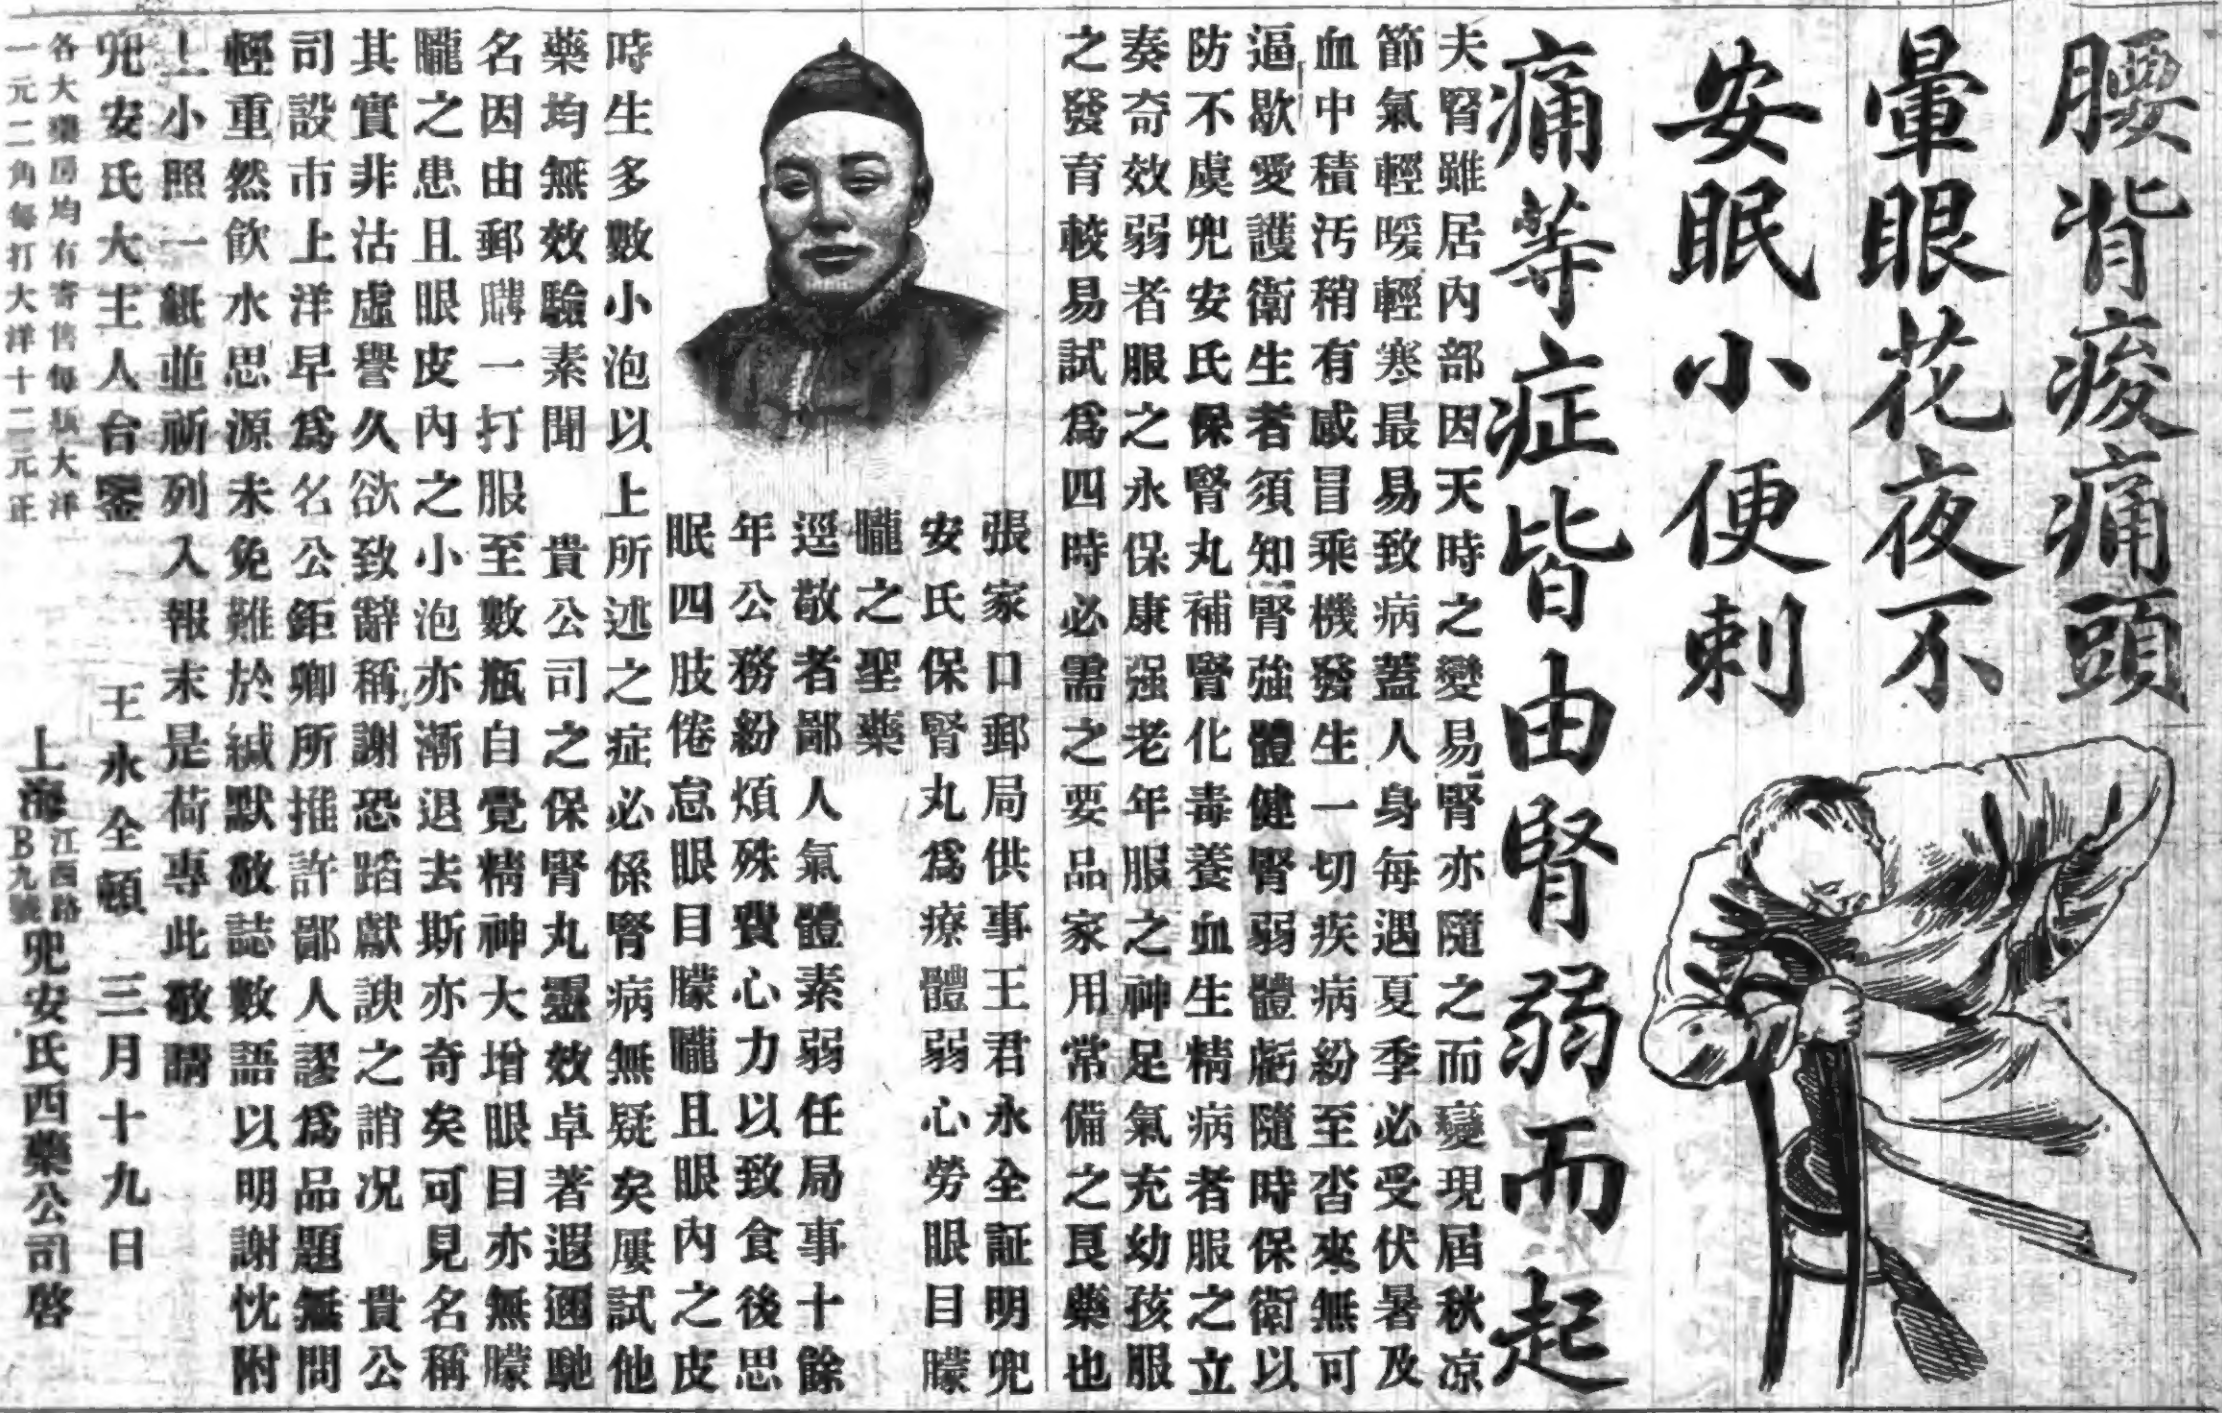 腰背痠痛頭
暈眼花夜不
安眠小便刺
痛等症皆由腎弱而起
夫腎雖居內部因天時之變易腎亦隨之而變現屆秋凉
節氣輕暖輕寒最易致病蓋人身每遇夏季必受伏暑及
血中積汚稍有感冒乘機發生一切疾病紛至沓來無可
逼歇愛護衛生者須知腎強體健腎弱體虧隨時保衛以
防不虞兜安氏保腎丸補腎化毒養血生精病者服之立
奏奇效弱者服之永保康强老年服之神足氣充幼孩服
之發育較易試爲四時必需之要品家用常備之良藥也
張家口郵局供事王君永全証明兜
安氏保腎丸爲療體弱心勞眼目矇
矓之聖藥
逕敬者鄙人氣體素弱任局事十餘
年公務紛煩殊費心力以致食後思
眠四肢倦怠眼目矇矓且眼內之皮
時生多數小泡以上所述之症必係腎病無疑矣屢試他
藥均無效驗素聞 貴公司之保腎丸靈效卓著遐邇馳
名因由郵購一打服至數瓶自覺精神大增眼目亦無矇
矓之患且眼皮內之小泡亦漸退去斯亦奇矣可見名稱
其實非沽虛譽久欲致辭稱謝恐蹈獻諛之誚况 貴公
司設市上洋早爲名公鉅卿所推許鄙人謬爲品題無問
輕重然飲水思源未免難於緘默敬誌數語以明謝忱附
上小照一紙並祈列入報末是荷專此敬請
兜安氏大主人台鑒 王永全頓 三月十九日
各大藥房均有寄售每瓶大洋
一元二角每打大洋十二元正
上海江西路B九號兜安氏西藥公司啓